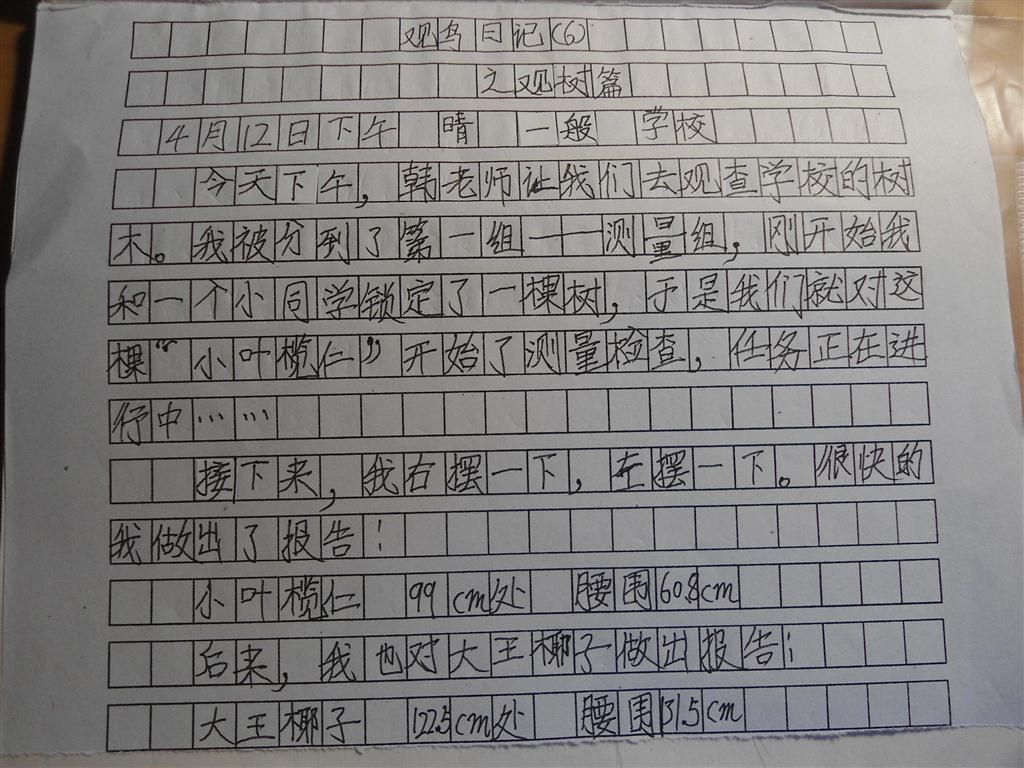 观鸟日记(6)
之观树篇
4月12日下午 晴 一般 学校
今天下午，韩老师让我们去观查学校的树
木。我被分到了第一组——测量组，刚开始我
和一个小同学锁定了一棵树，于是我们就对这
棵“小叶榄仁”开始了测量检查，任务正在进
行中……
接下来，我右摆一下，左摆一下。很快的
我做出了报告：
小叶榄仁 99cm处 腰围60.8cm
后来，我也对大王椰子做出报告：
大王椰子 122.5cm处 腰围131.5cm